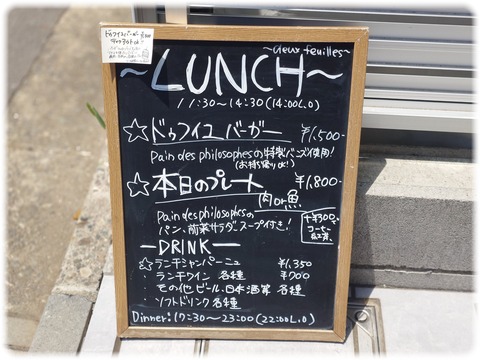 ドゥフイユバーガー
テイクアウトok!
~deux feuilles~
~LUNCH~
11:30~14:30(14:00L.O)
☆ドゥフイユバーガー ¥1,500-
Pain des philosophesの特製バンズ使用!
(お持ち帰りok!)
☆本日のプレート ¥1,800-
肉or魚
Pain des philosophesの
パン、前菜サラダスープ付き!
+¥300で
コーヒー
or
—DRINK—
☆ランチシャンパーニュ ¥1,350
・ランチワイン 各種 ¥700
・その他ビール、日本酒等 各種
・ソフトドリンク各種
Dinner:17:30~23:00(22:00L.O)